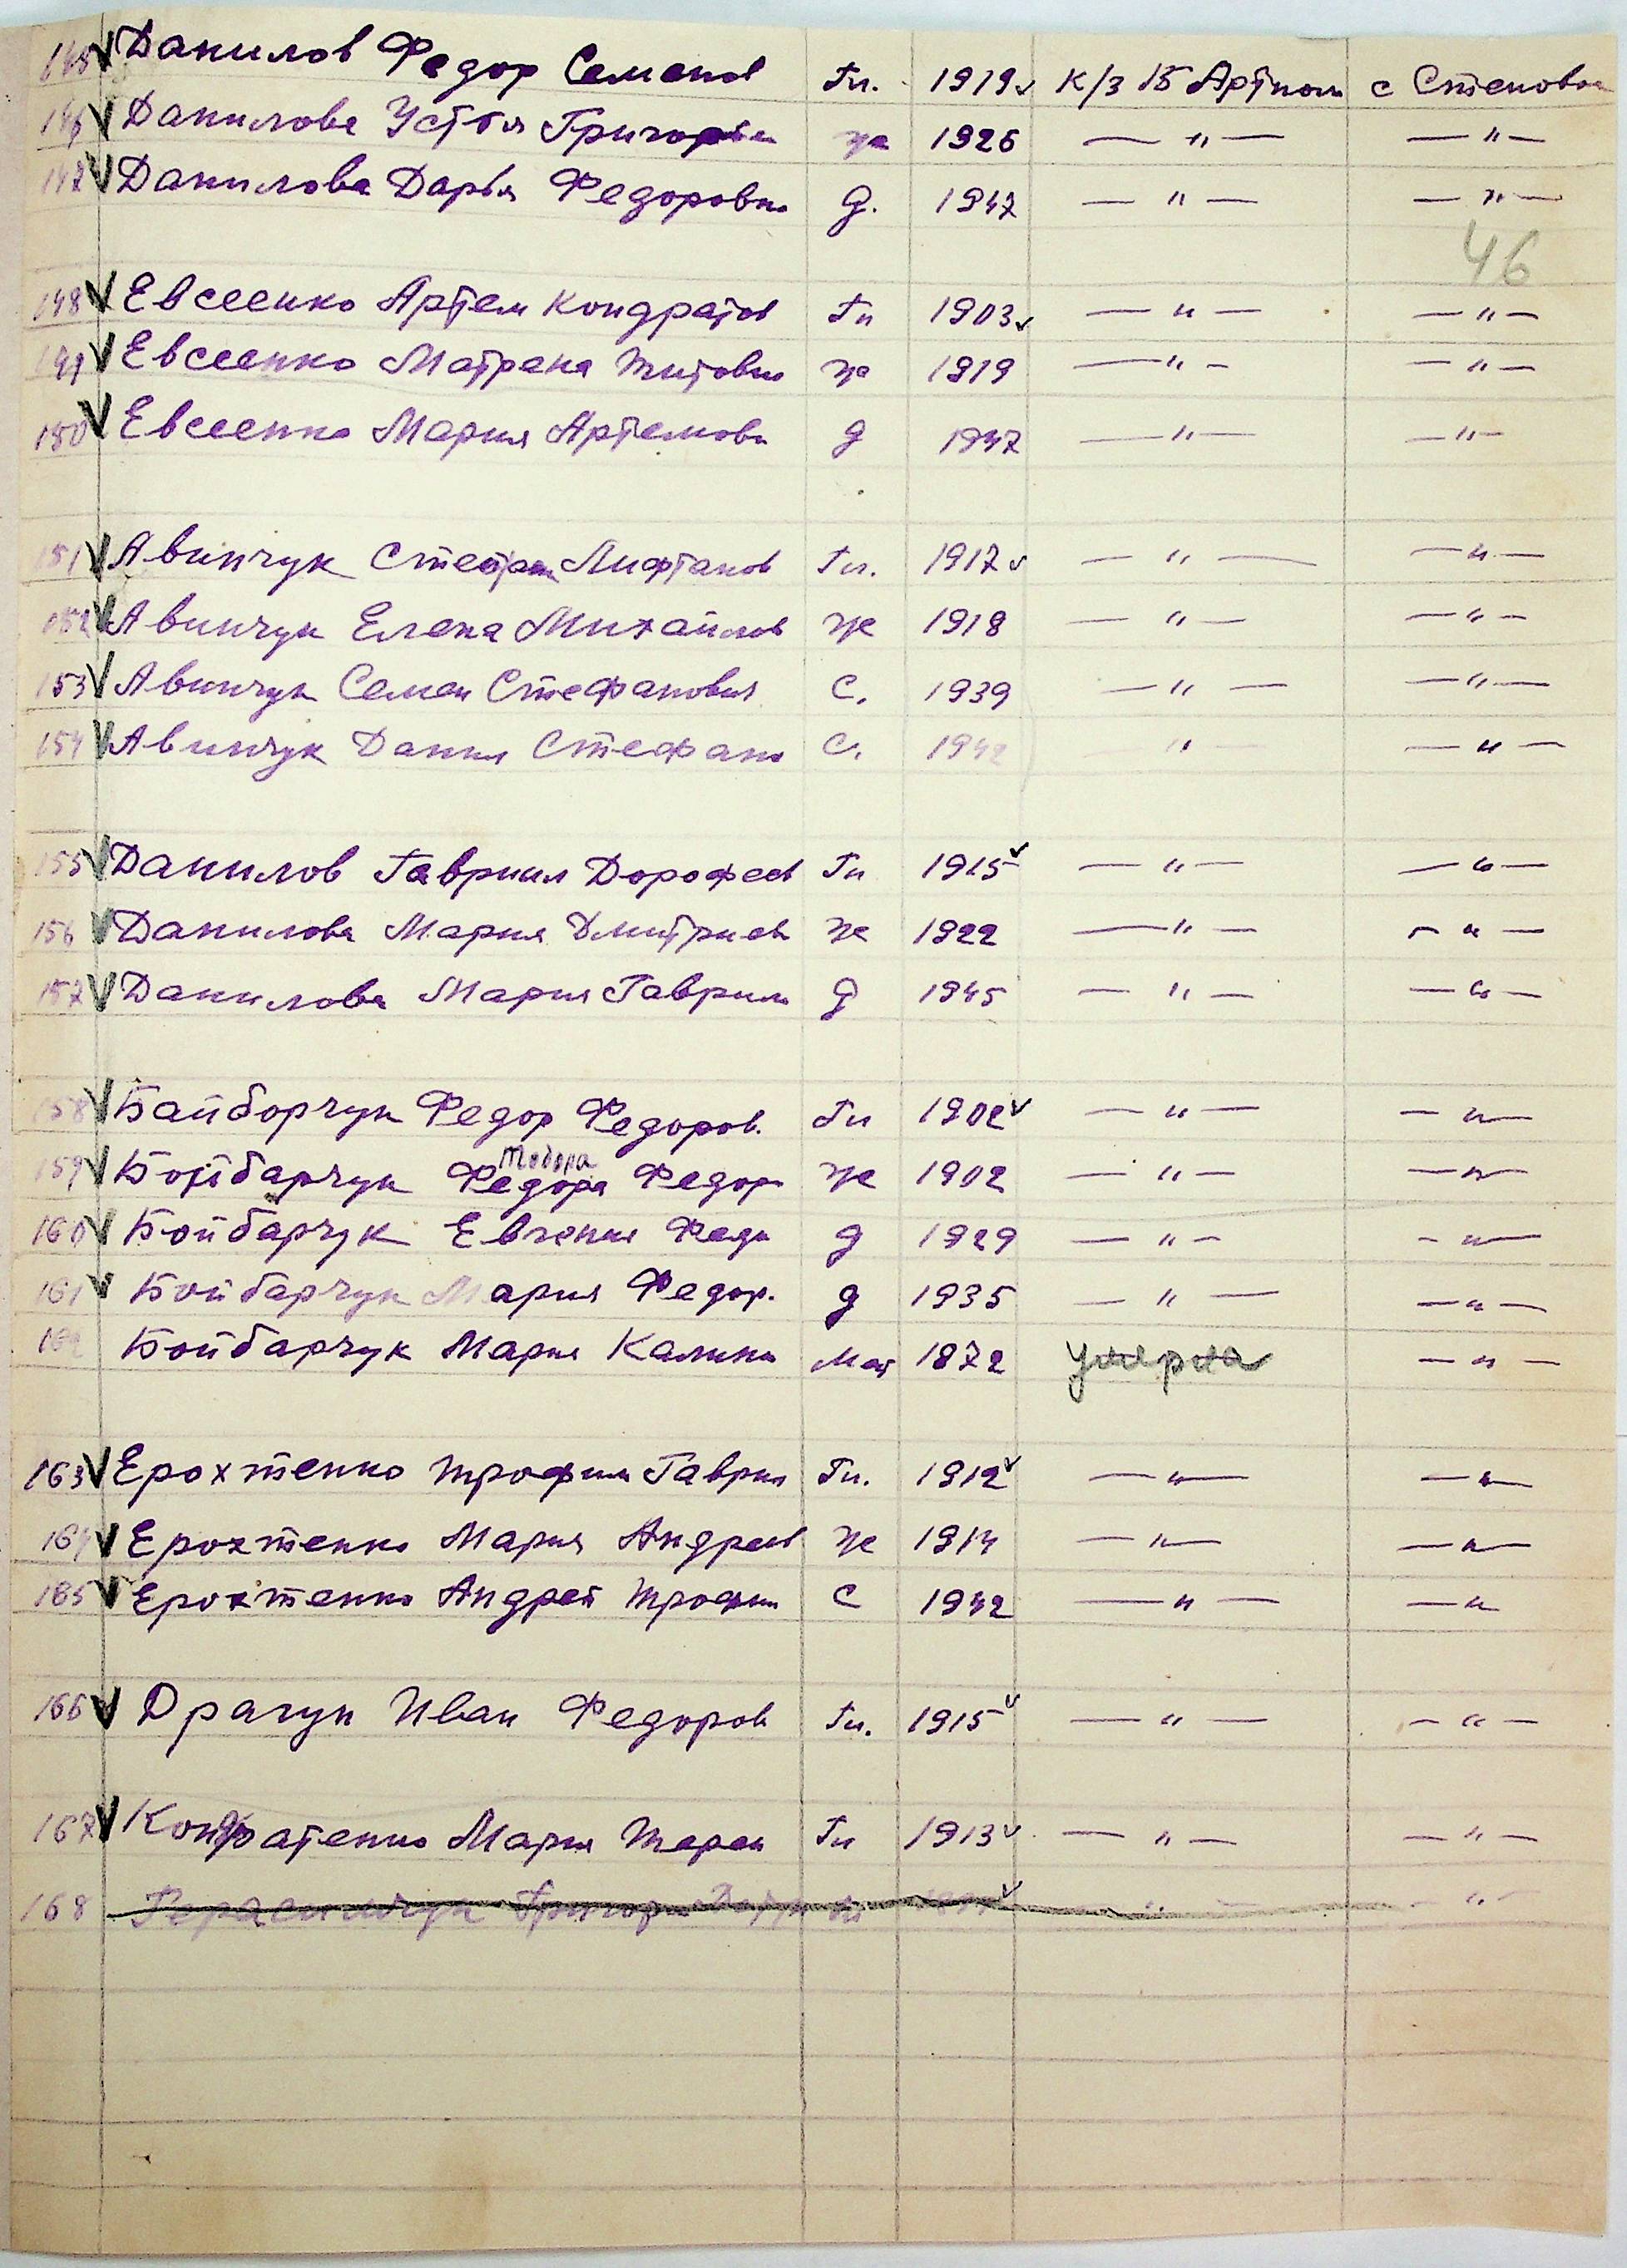 145 Данилов Федор Семенов Гл. 1919 к/з 15 Артпом с Степовое
146 Данилова Устья Григорьев же 1926 — " — — " —
147 Данилова Дарья Федоровна д. 1947 — " — — " —
46
148 Евсеенко Артем Кондратов Гл 1903 — " — — " —
149 Евсеенко Матрена Титовна же 1919 — " — — " —
150 Евсеенко Мария Артемовн д 1947 — " — — " —
151 Авинчук Стефан Лифтанов Гл. 1917 — " — — " —
152 Авинчук Елена Михайлов же 1918 — " — — " —
153 Авинчук Семен Стефанович С. 1939 — " — — " —
154 Авинчук Данил Стефано С. 1942 " — — " —
155 Данилов Гавриил Дорофеев Гл 1915 — " — — " —
156 Данилова Мария Дмитриев же 1922 — " — — " —
157 Данилова Мария Гаврил д 1945 — " — — " —
158 Байборчук Федор Федоров. Гл 1902 — " — — " —
Тодора
159 Бойбарчук Федора Федор же 1902 — " — — " —
160 Бойбарчук Евгения Федо д 1929 — " — — " —
161 Бойбарчук Мария Федор. д 1935 — " — — " —
162 Бойбарчук Мария Калини Мат 1872 умерла — " —
163 Ерохтенко Трофим Гаврил Гл. 1912 — " — — " —
164 Ерохтенко Мария Андреев же 1914 — " — — " —
165 Ерохтенко Андрей Трофим С 1942 — " — — " —
166 Драгун Иван Федоров Гл. 1915 — " — — " —
167 Кондратенко Мария Терен Гл 1913 — " — — " —
168 Герасимчук Григори " — " —